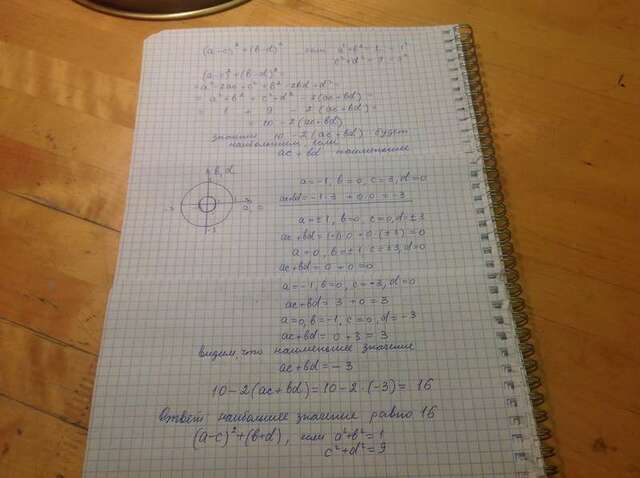 (a-c)² + (b-d)² если a²+b² = 1 = 1²
c²+d² = 9 = 3²
(a-c)² + (b-d)² =
= a² - 2ac + c² + b² - 2bd + d² =
= a² + b² + c² + d² - 2(ac+bd) =
= 1 + 9 - 2(ac+bd) =
= 10 - 2(ac+bd)
значит 10 - 2(ac+bd) будет
наибольшим, если
ac + bd наименьшее
b, d
a, c
-3
a = -1, b = 0, c = 3, d = 0
ac+bd = -1·3 + 0·0 = -3
a = ±1, b = 0, c = 0, d = ±3
ac+bd = (±1)·0 + 0·(±3) = 0
a = 0, b = ±1, c = ±3, d = 0
ac+bd = 0 + 0 = 0
a = -1, b = 0, c = -3, d = 0
ac+bd = 3 + 0 = 3
a = 0, b = -1, c = 0, d = -3
ac+bd = 0 + 3 = 3
Видим, что наименьшее значение
ac+bd = -3
10 - 2(ac+bd) = 10 - 2·(-3) = 16
Ответ наибольшее значение равно 16
(a-c)² + (b+d), если a²+b² = 1
c²+d² = 9